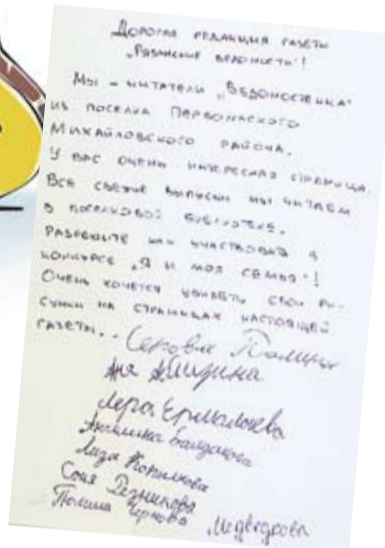 Дорогая редакция газеты
„Рязанские ведомости"!
Мы – читатели „Ведомостенка"
из поселка Первомайского
Михайловского района.
У вас очень интересная страница.
Все свежие выпуски мы читаем
в поселковой библиотеке.
Разрешите нам участвовать в
конкурсе „Я и моя семья"!
Очень хочется увидеть свои ри-
сунки на страницах настоящей
газеты..
Полина
Аня
Лера Ермолаева
Анжелика
Лиза Копилкова
Соня Резникова
Полина Чернова